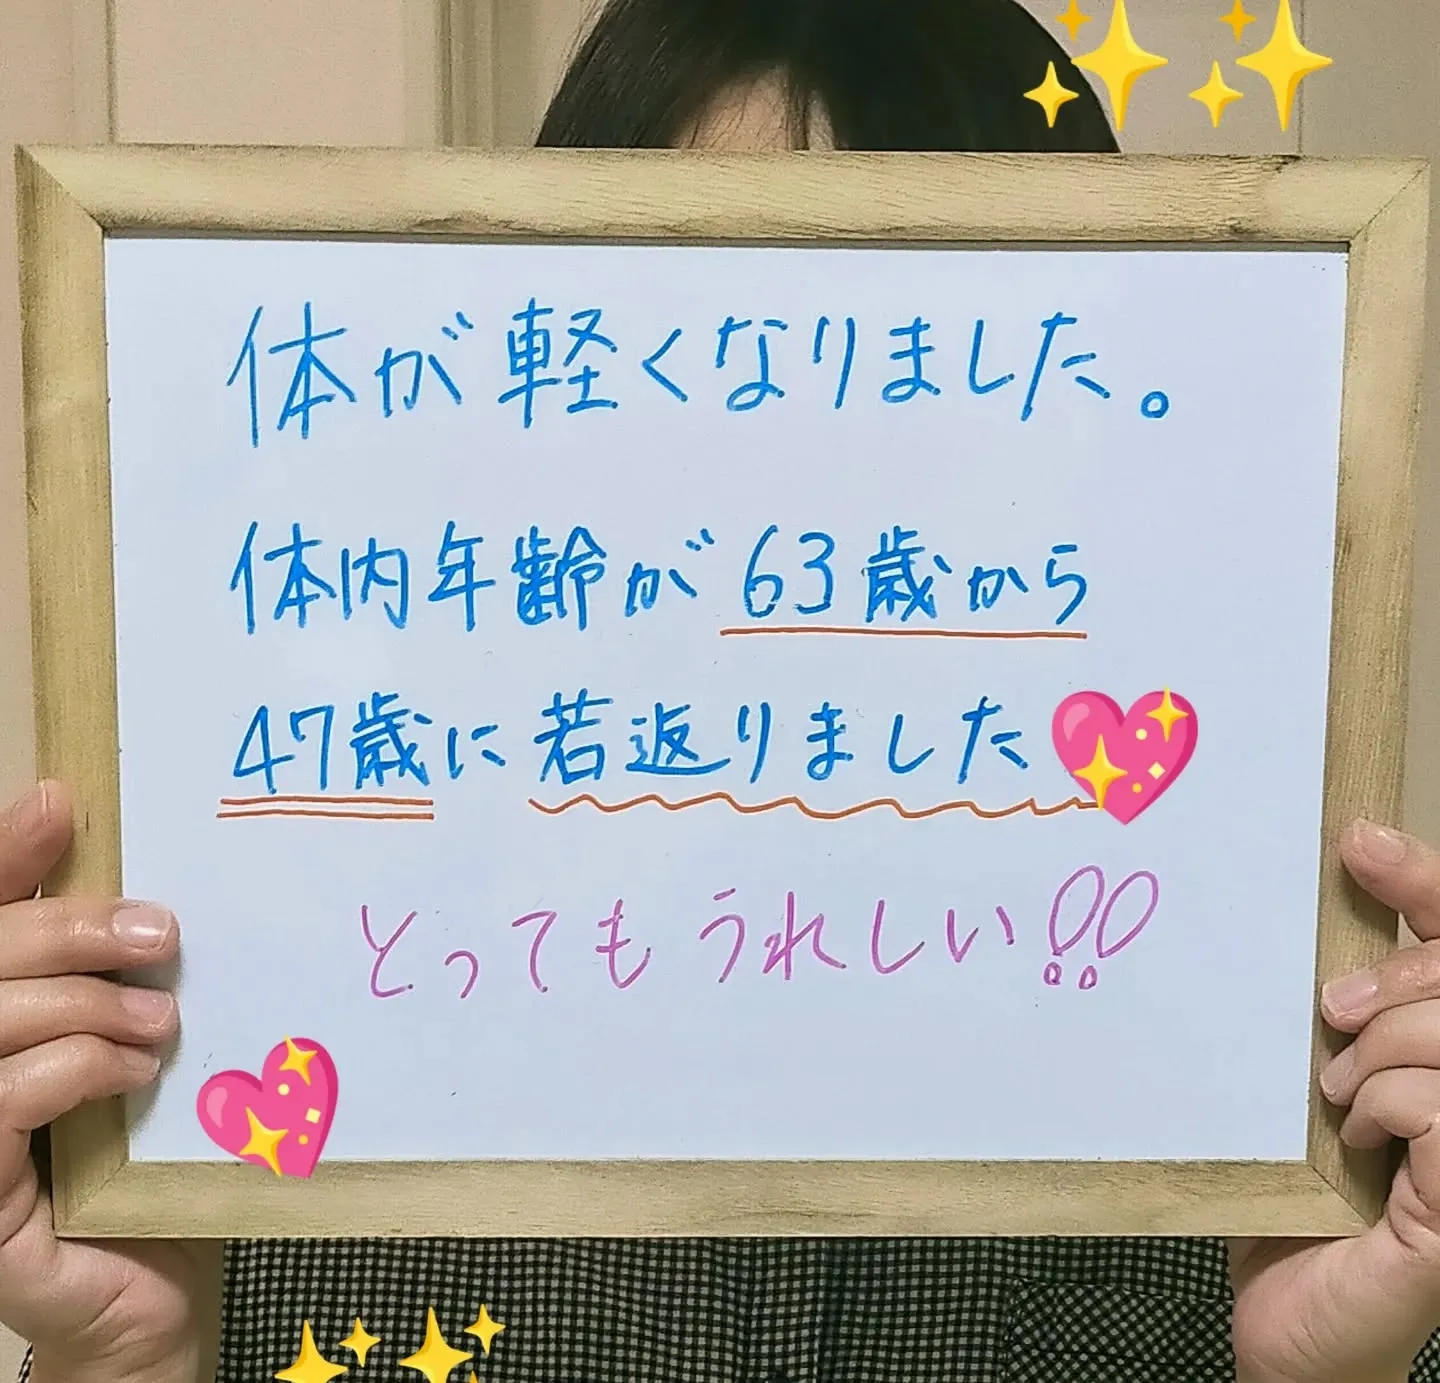 体が軽くなりました。
体内年齢が63歳から
47歳に若返りました
とってもうれしい!!